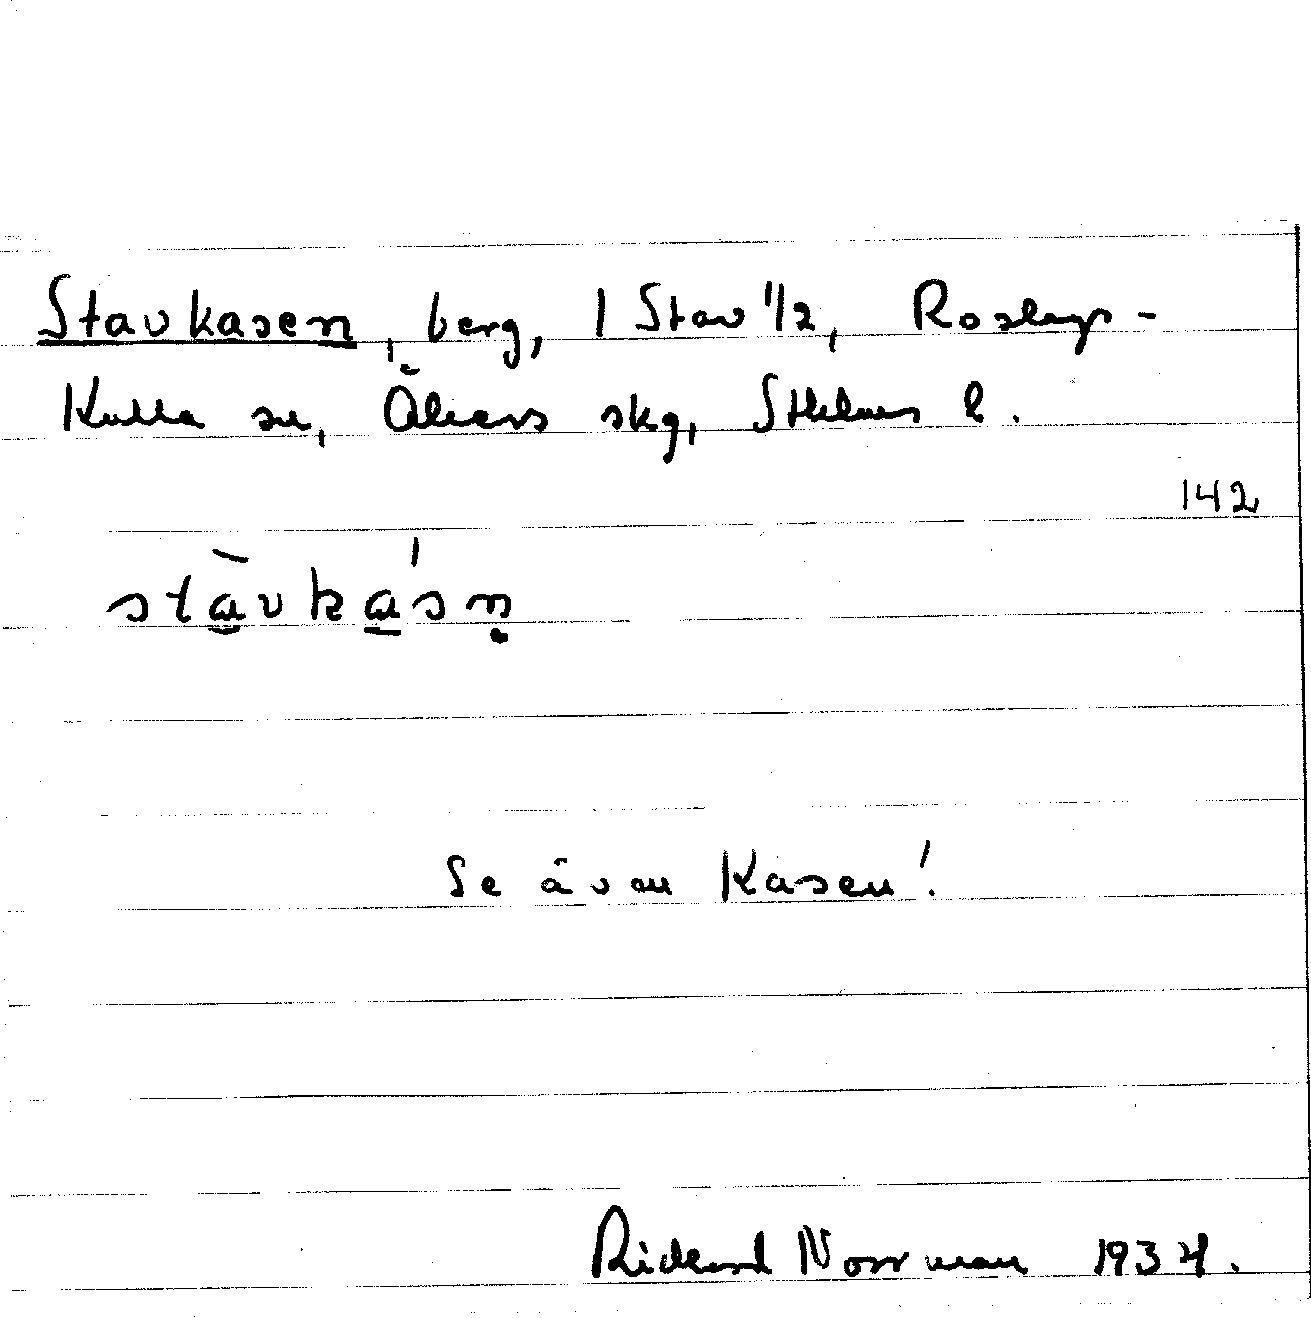 Stavkasen, berg, 1 Stav 1/2, Roslags-
Kulla sn, Åkers skg, Sthlms l.
142
stàvkás̩n̩
Se även Kasen!
Rickard Norrman 1934.